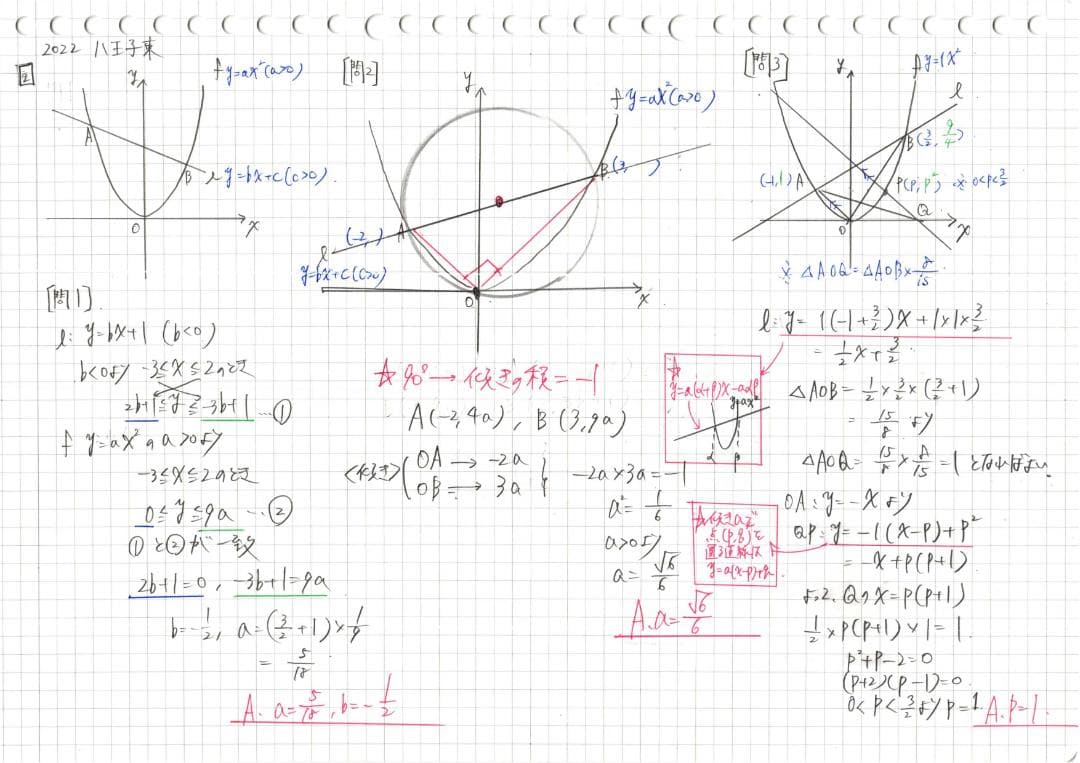 2022 八王子東
2
y
f y=ax²(a>0)
A
B
l y=bx+c(c>0)
O
x
[問1]
l: y=bx+1 (b<0)
b<0より -3≦x≦2のとき
2b+1≦y≦-3b+1 …①
f y=ax²のa>0より
-3≦x≦2のとき
0≦y≦9a …②
①と②が一致
2b+1=0, -3b+1=9a
b=-1/2, a=(3/2+1)×1/9
=5/18
A. a=5/18, b=-1/2
[問2]
y
f y=ax²(a>0)
B(3, )
(-2, )
A
l
y=bx+c(c>0)
O
x
☆90°→傾きの積=-1
A(-2,4a), B(3,9a)
<傾き>
OA→-2a
OB→3a
-2a×3a=-1
a²=1/6
a>0より
a=√6/6
A. a=√6/6
[問3]
y
f y=1x²
l
B(3/2, 9/4)
(-1,1)A
P(p, p²) …※ 0<p<3/2
Q
O
x
※ △AOQ=△AOB×8/15
l: y=1(-1+3/2)x+1×1×3/2
=1/2x+3/2
☆
y=a(α+β)x-aαβ
y=ax²
α
β
△AOB=1/2×3/2×(3/2+1)
=15/8 より
△AOQ=15/8×8/15=1となればよい
OA: y=-xより
QP: y=-1(x-p)+p²
=-x+p(p+1)
☆傾きaで
点(p,q)を
通る直線は
y=a(x-p)+q
よって、Qのx=p(p+1)
1/2×p(p+1)×1=1
p²+p-2=0
(p+2)(p-1)=0
0<p<3/2よりp=1
A. p=1.